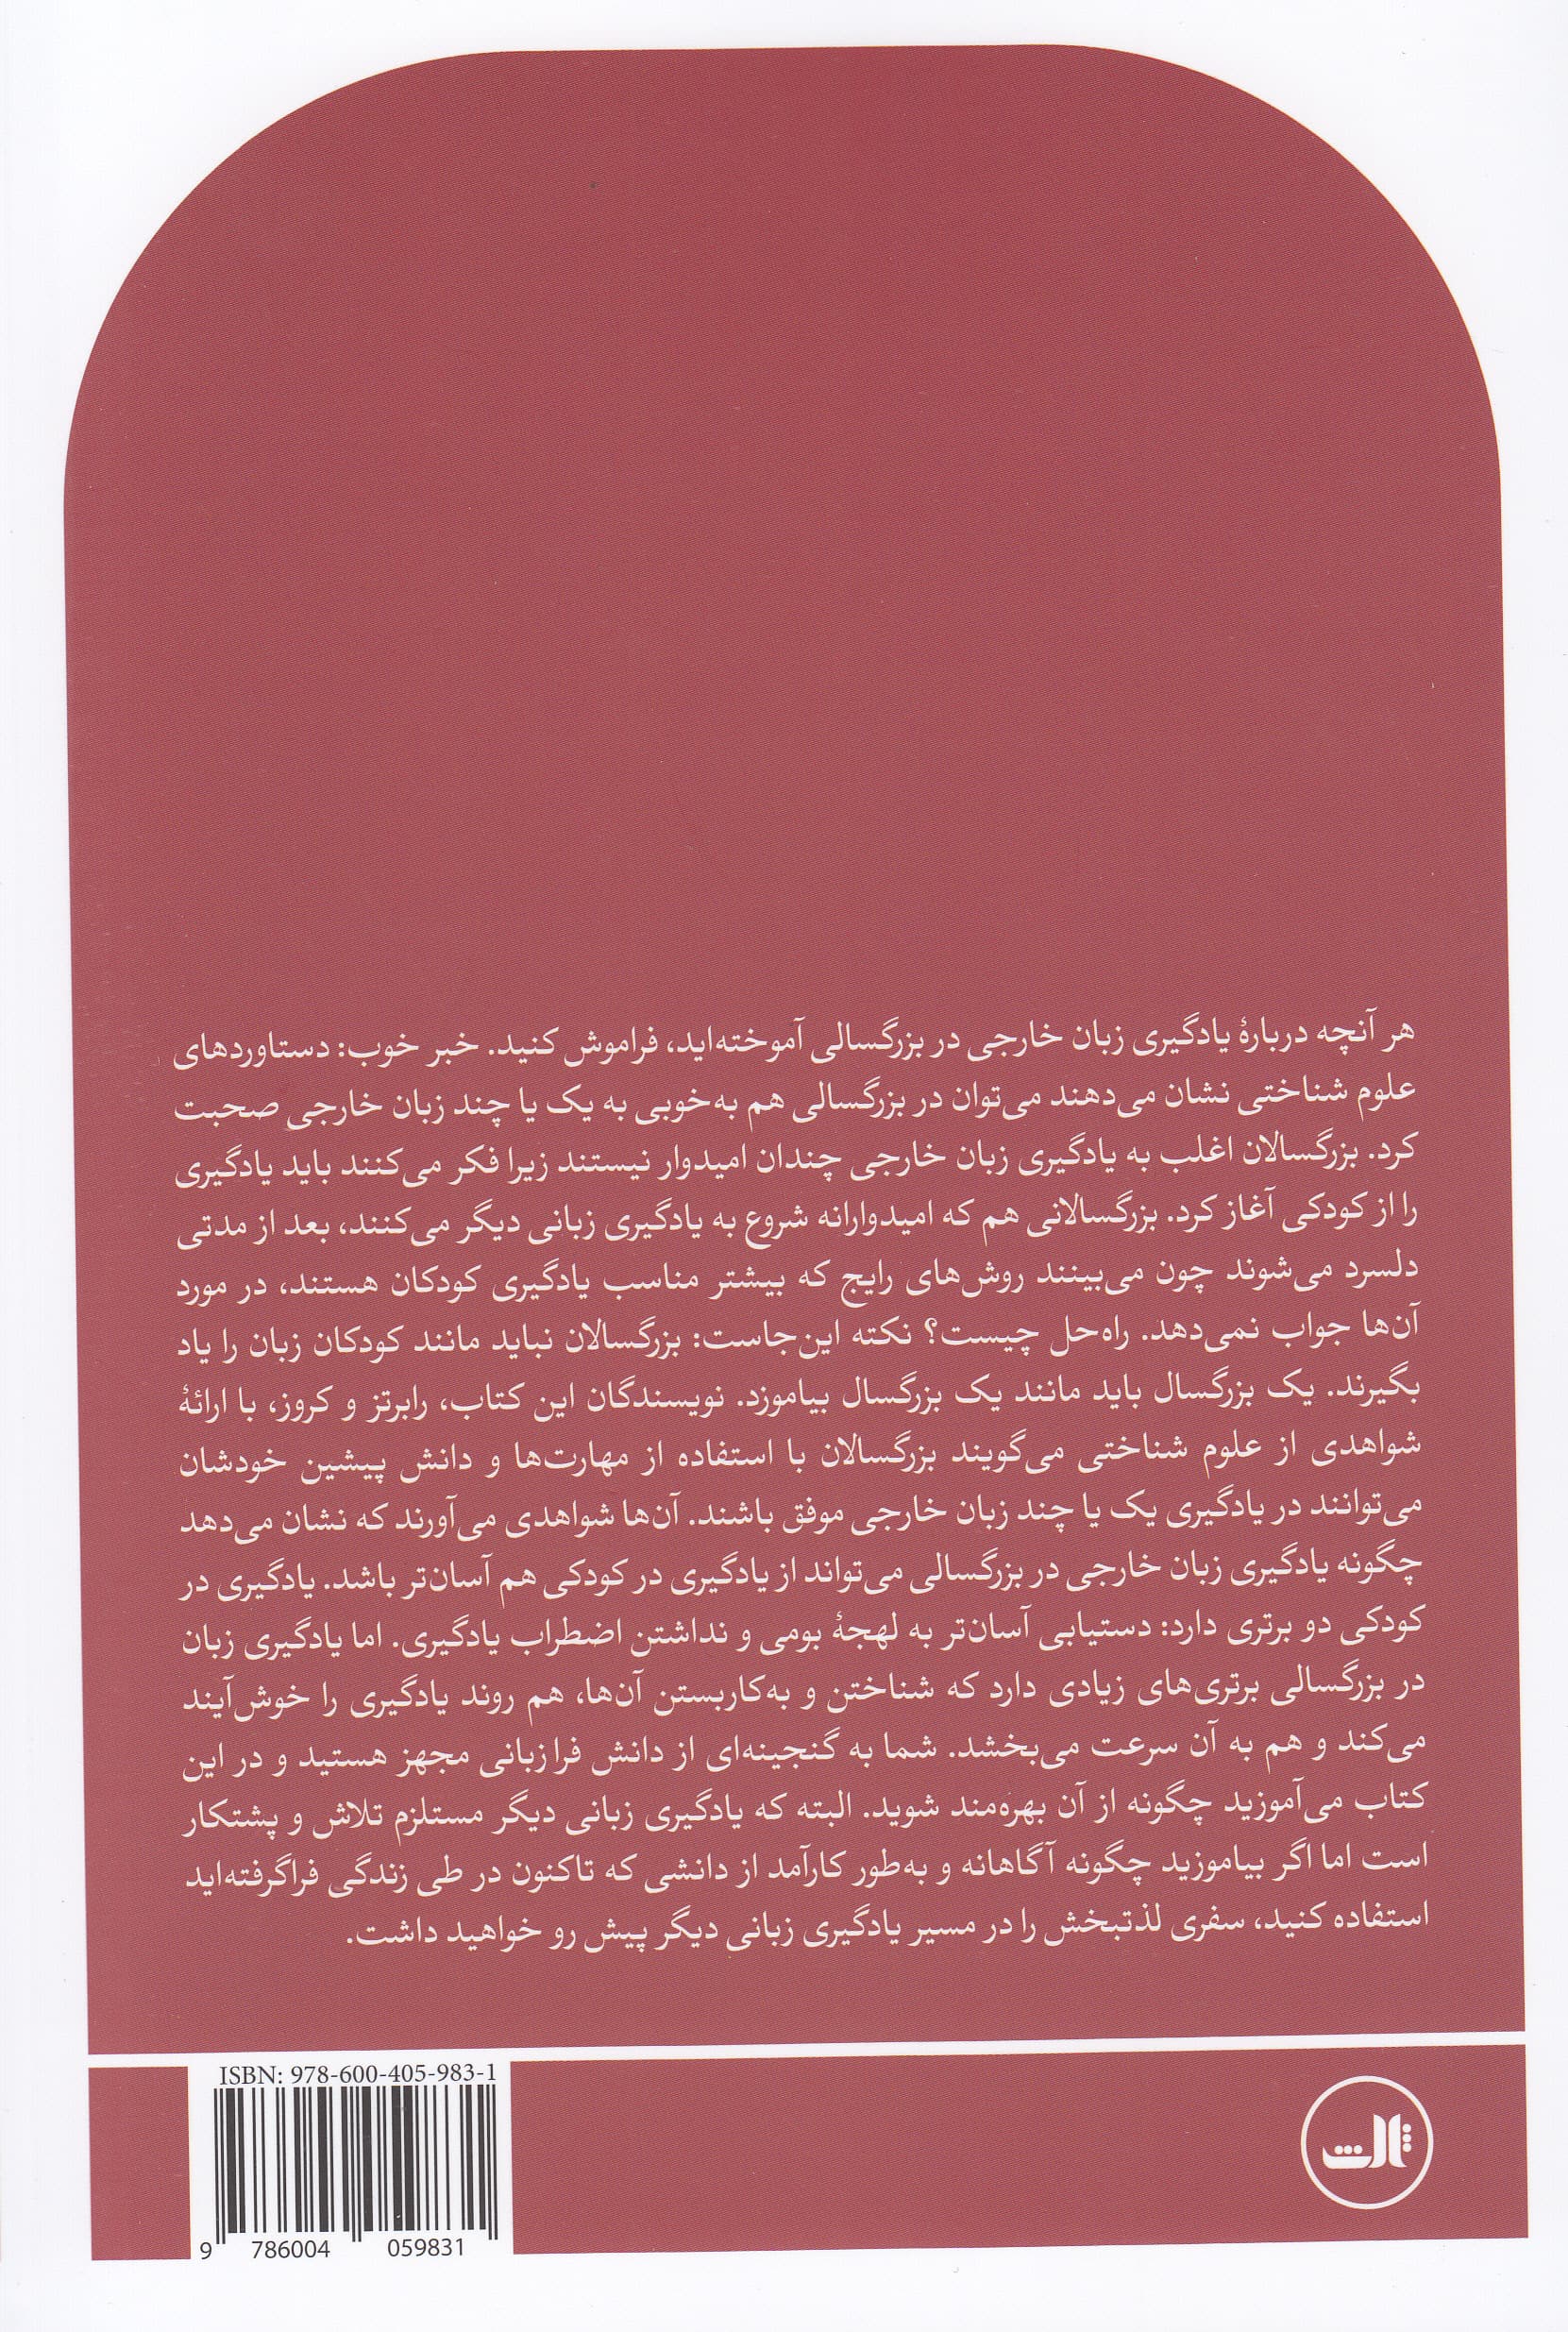 هر آنچه دربارهٔ یادگیری زبان خارجی در بزرگسالی آموخته‌اید، فراموش کنید. خبر خوب: دستاوردهای
علوم شناختی نشان می‌دهند می‌توان در بزرگسالی هم به‌خوبی به یک یا چند زبان خارجی صحبت
کرد. بزرگسالان اغلب به یادگیری زبان خارجی چندان امیدوار نیستند زیرا فکر می‌کنند باید یادگیری
را از کودکی آغاز کرد. بزرگسالانی هم که امیدوارانه شروع به یادگیری زبانی دیگر می‌کنند، بعد از مدتی
دلسرد می‌شوند چون می‌بینند روش‌های رایج که بیشتر مناسب یادگیری کودکان هستند، در مورد
آن‌ها جواب نمی‌دهد. راه‌حل چیست؟ نکته این‌جاست: بزرگسالان نباید مانند کودکان زبان را یاد
بگیرند. یک بزرگسال باید مانند یک بزرگسال بیاموزد. نویسندگان این کتاب، رابرتز و کروز، با ارائهٔ
شواهدی از علوم شناختی می‌گویند بزرگسالان با استفاده از مهارت‌ها و دانش پیشین خودشان
می‌توانند در یادگیری یک یا چند زبان خارجی موفق باشند. آن‌ها شواهدی می‌آورند که نشان می‌دهد
چگونه یادگیری زبان خارجی در بزرگسالی می‌تواند از یادگیری در کودکی هم آسان‌تر باشد. یادگیری در
کودکی دو برتری دارد: دستیابی آسان‌تر به لهجهٔ بومی و نداشتن اضطراب یادگیری. اما یادگیری زبان
در بزرگسالی برتری‌های زیادی دارد که شناختن و به‌کاربستن آن‌ها، هم روند یادگیری را خوش‌آیند
می‌کند و هم به آن سرعت می‌بخشد. شما به گنجینه‌ای از دانش فرازبانی مجهز هستید و در این
کتاب می‌آموزید چگونه از آن بهره‌مند شوید. البته که یادگیری زبانی دیگر مستلزم تلاش و پشتکار
است اما اگر بیاموزید چگونه آگاهانه و به‌طور کارآمد از دانشی که تاکنون در طی زندگی فراگرفته‌اید
استفاده کنید، سفری لذتبخش را در مسیر یادگیری زبانی دیگر پیش رو خواهید داشت.
ISBN: 978-600-405-983-1
9 786004 059831
ثالث